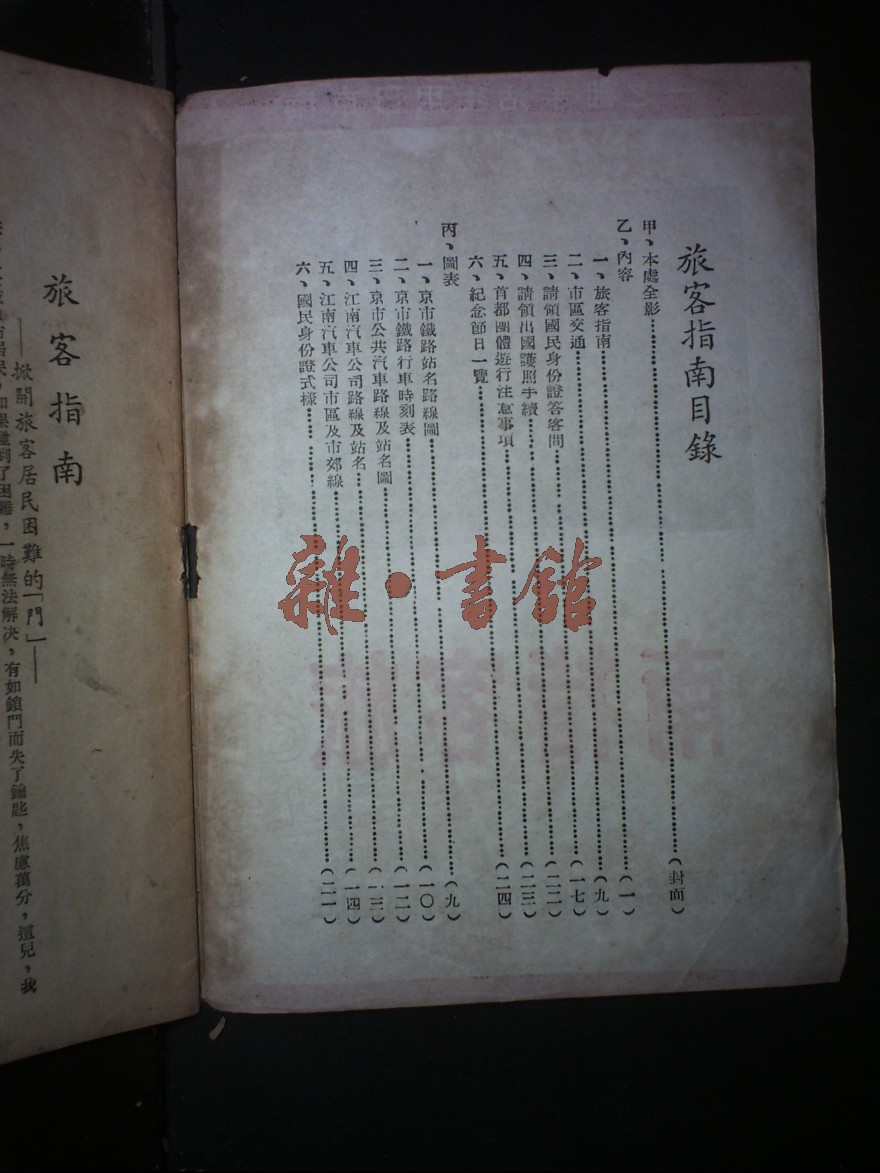 旅客指南目錄
甲、本處全影……(封面)
乙、內容
一、旅客指南……(一)
二、市區交通……(九)
三、請領國民身份證答客問……(一七)
四、請領出國護照手續……(二二)
五、首都團體遊行注意事項……(二三)
六、紀念節日一覽……(二四)
丙、圖表
一、京市鐵路站名路線圖……(九)
二、京市鐵路行車時刻表……(一〇)
三、京市公共汽車路線及站名圖……(一二)
四、江南汽車公司路線及站名……(一三)
五、江南汽車公司市區及市郊線……(一四)
六、國民身份證式樣……(二一)
旅客指南
——掀開旅客居民困難的「門」——
居民，如果遭到了困難，一時無法解決，有如鎖門而失了鑰匙，焦慮萬分，這兒，我
雜·書館